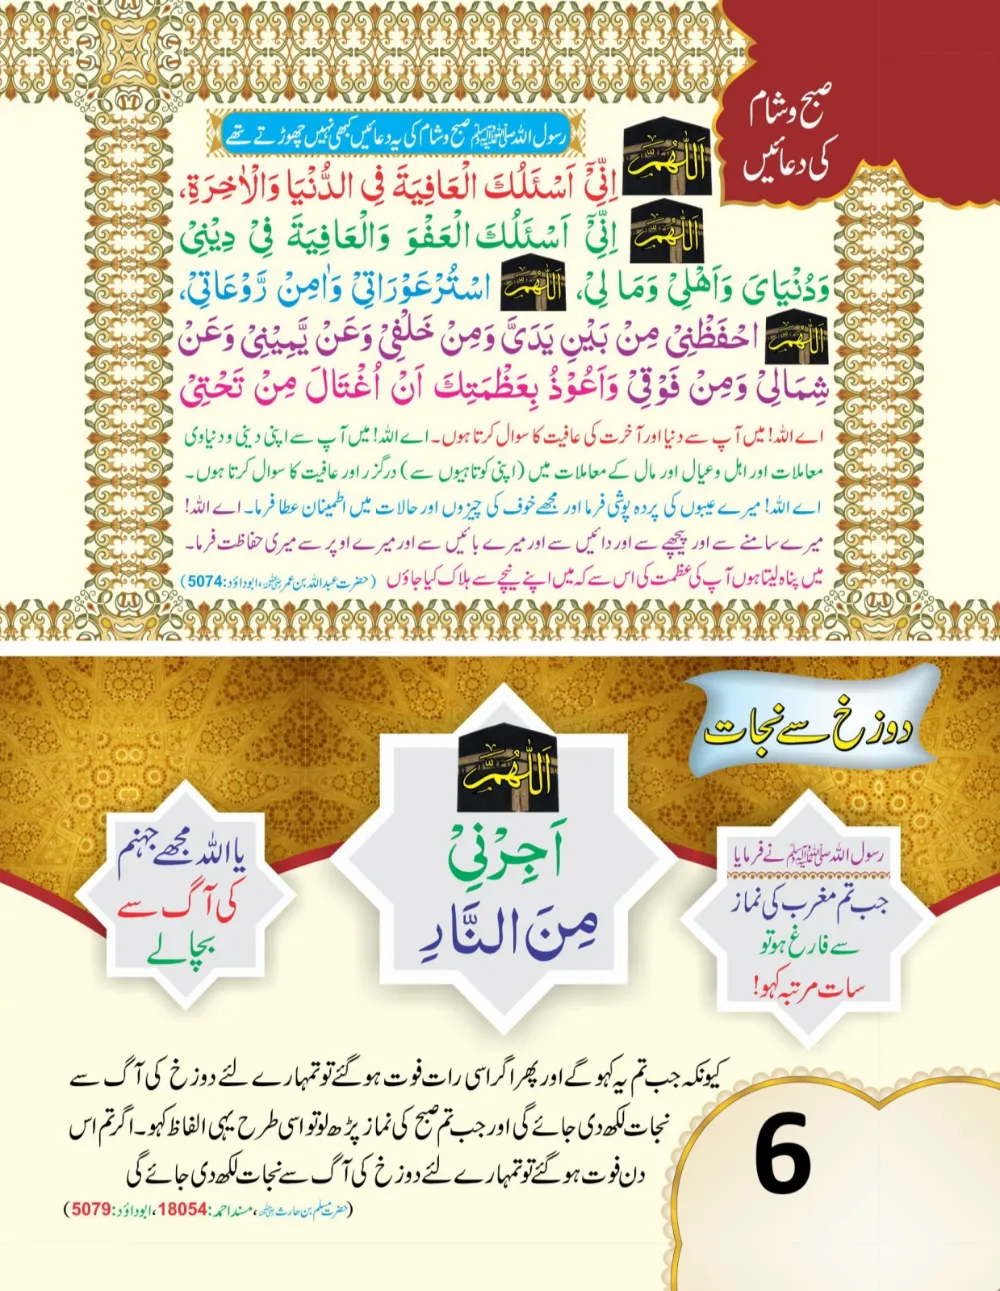 صبح و شام
کی دعائیں
رسول اللہ ﷺ صبح و شام کی یہ دعائیں کبھی نہیں چھوڑتے تھے
اَللّٰهُمَّ اِنِّیْۤ اَسْئَلُكَ الْعَافِيَةَ فِی الدُّنْيَا وَالْاٰخِرَةِ،
اَللّٰهُمَّ اِنِّیْۤ اَسْئَلُكَ الْعَفْوَ وَالْعَافِيَةَ فِیْ دِيْنِیْ
وَدُنْيَایَ وَاَهْلِیْ وَمَا لِیْ، اَللّٰهُمَّ اسْتُرْعَوْرَاتِیْ وَاٰمِنْ رَّوْعَاتِیْ،
اَللّٰهُمَّ احْفَظْنِیْ مِنْ بَيْنِ يَدَیَّ وَمِنْ خَلْفِیْ وَعَنْ يَّمِيْنِیْ وَعَنْ
شِمَالِیْ وَمِنْ فَوْقِیْ وَاَعُوْذُ بِعَظْمَتِكَ اَنْ اُغْتَالَ مِنْ تَحْتِیْ
اے اللہ! میں آپ سے دنیا اور آخرت کی عافیت کا سوال کرتا ہوں۔ اے اللہ! میں آپ سے اپنی دینی و دنیاوی
معاملات اور اہل وعیال اور مال کے معاملات میں (اپنی کوتاہیوں سے) درگزر اور عافیت کا سوال کرتا ہوں۔
اے اللہ! میرے عیبوں کی پردہ پوشی فرما اور مجھے خوف کی چیزوں اور حالات میں اطمینان عطا فرما۔ اے اللہ!
میرے سامنے سے اور پیچھے سے اور دائیں سے اور میرے بائیں سے اور میرے اوپر سے میری حفاظت فرما۔
میں پناہ لیتا ہوں آپ کی عظمت کی اس سے کہ میں اپنے نیچے سے ہلاک کیا جاؤں (حضرت عبداللہ بن عمر رضی اللہ عنہ، ابوداؤد: 5074)
دوزخ سے نجات
رسول اللہ ﷺ نے فرمایا
جب تم مغرب کی نماز
سے فارغ ہو تو
سات مرتبہ کہو!
اَللّٰهُمَّ
اَجِرْنِیْ
مِنَ النَّارِ
یا اللہ مجھے جہنم
کی آگ سے
بچالے
کیونکہ جب تم یہ کہو گے اور پھر اگر اسی رات فوت ہو گئے تو تمہارے لئے دوزخ کی آگ سے
نجات لکھ دی جائے گی اور جب تم صبح کی نماز پڑھ لو تو اسی طرح یہی الفاظ کہو۔ اگر تم اس
دن فوت ہو گئے تو تمہارے لئے دوزخ کی آگ سے نجات لکھ دی جائے گی
(حضرت مسلم بن حارث رضی اللہ عنہ، مسند احمد: 18054، ابوداؤد: 5079)
6